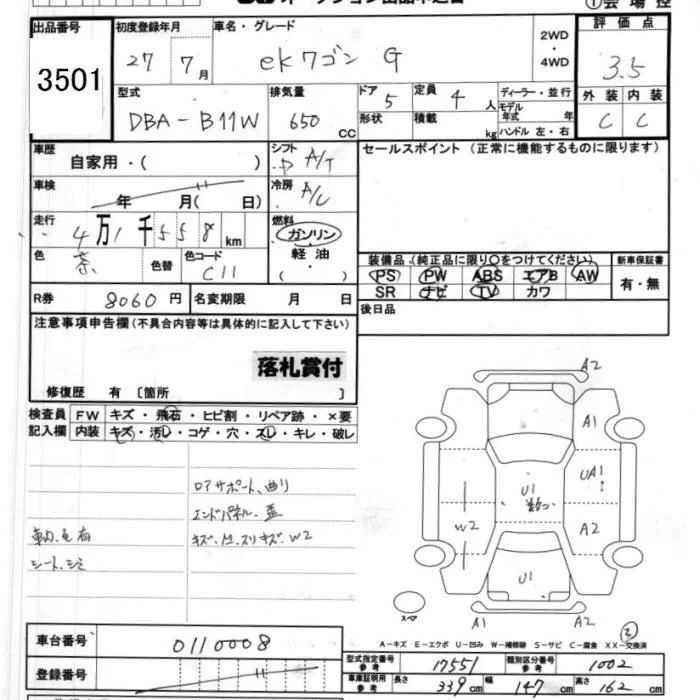 出品番号 初度登録年月 車名・グレード 2WD・4WD 評価点
3501 27年7月 ekワゴン G 3.5
型式 排気量 ドア 定員 ディーラー・並行 外装 内装
DBA-B11W 650cc 5 4人 モデル年式 年 C C
形状 積載 kg ハンドル 左・右
車歴 自家用・( ) シフト A/T セールスポイント (正常に機能するものに限ります)
車検 年 月( 日) 冷房 A/C
走行 4万1千558km 燃料 ガソリン
色 茶 色替 色コード C11 軽油 ・( )
装備品 (純正品に限り○をつけてください) 新車保証書
PS PW ABS エアB AW 有・無
SR ナビ TV カワ
R券 8060円 名変期限 月 日 後日品
注意事項申告欄(不具合内容等は具体的に記入して下さい)
落札賞付
修復歴 有 〔箇所 〕
検査員 FW キズ・飛石・ヒビ割・リペア跡・×要
記入欄 内装 キズ・汚レ・コゲ・穴・スレ・キレ・破レ
ロアサポート、曲り
エンドパネル、歪
キズ、凹、スリキズ、W2
シート、シミ
A2
A1
U1 UA1
W2 A2
U1
スペア A1 A2
A-キズ E-エクボ U-凹み W-補修跡 S-サビ C-腐食 XX-交換済
車台番号 0110008
登録番号
型式指定番号 参考 17551 類別区分番号 参考 1002
車庫証明用 参考 長さ 339cm 幅 147cm 高さ 162cm